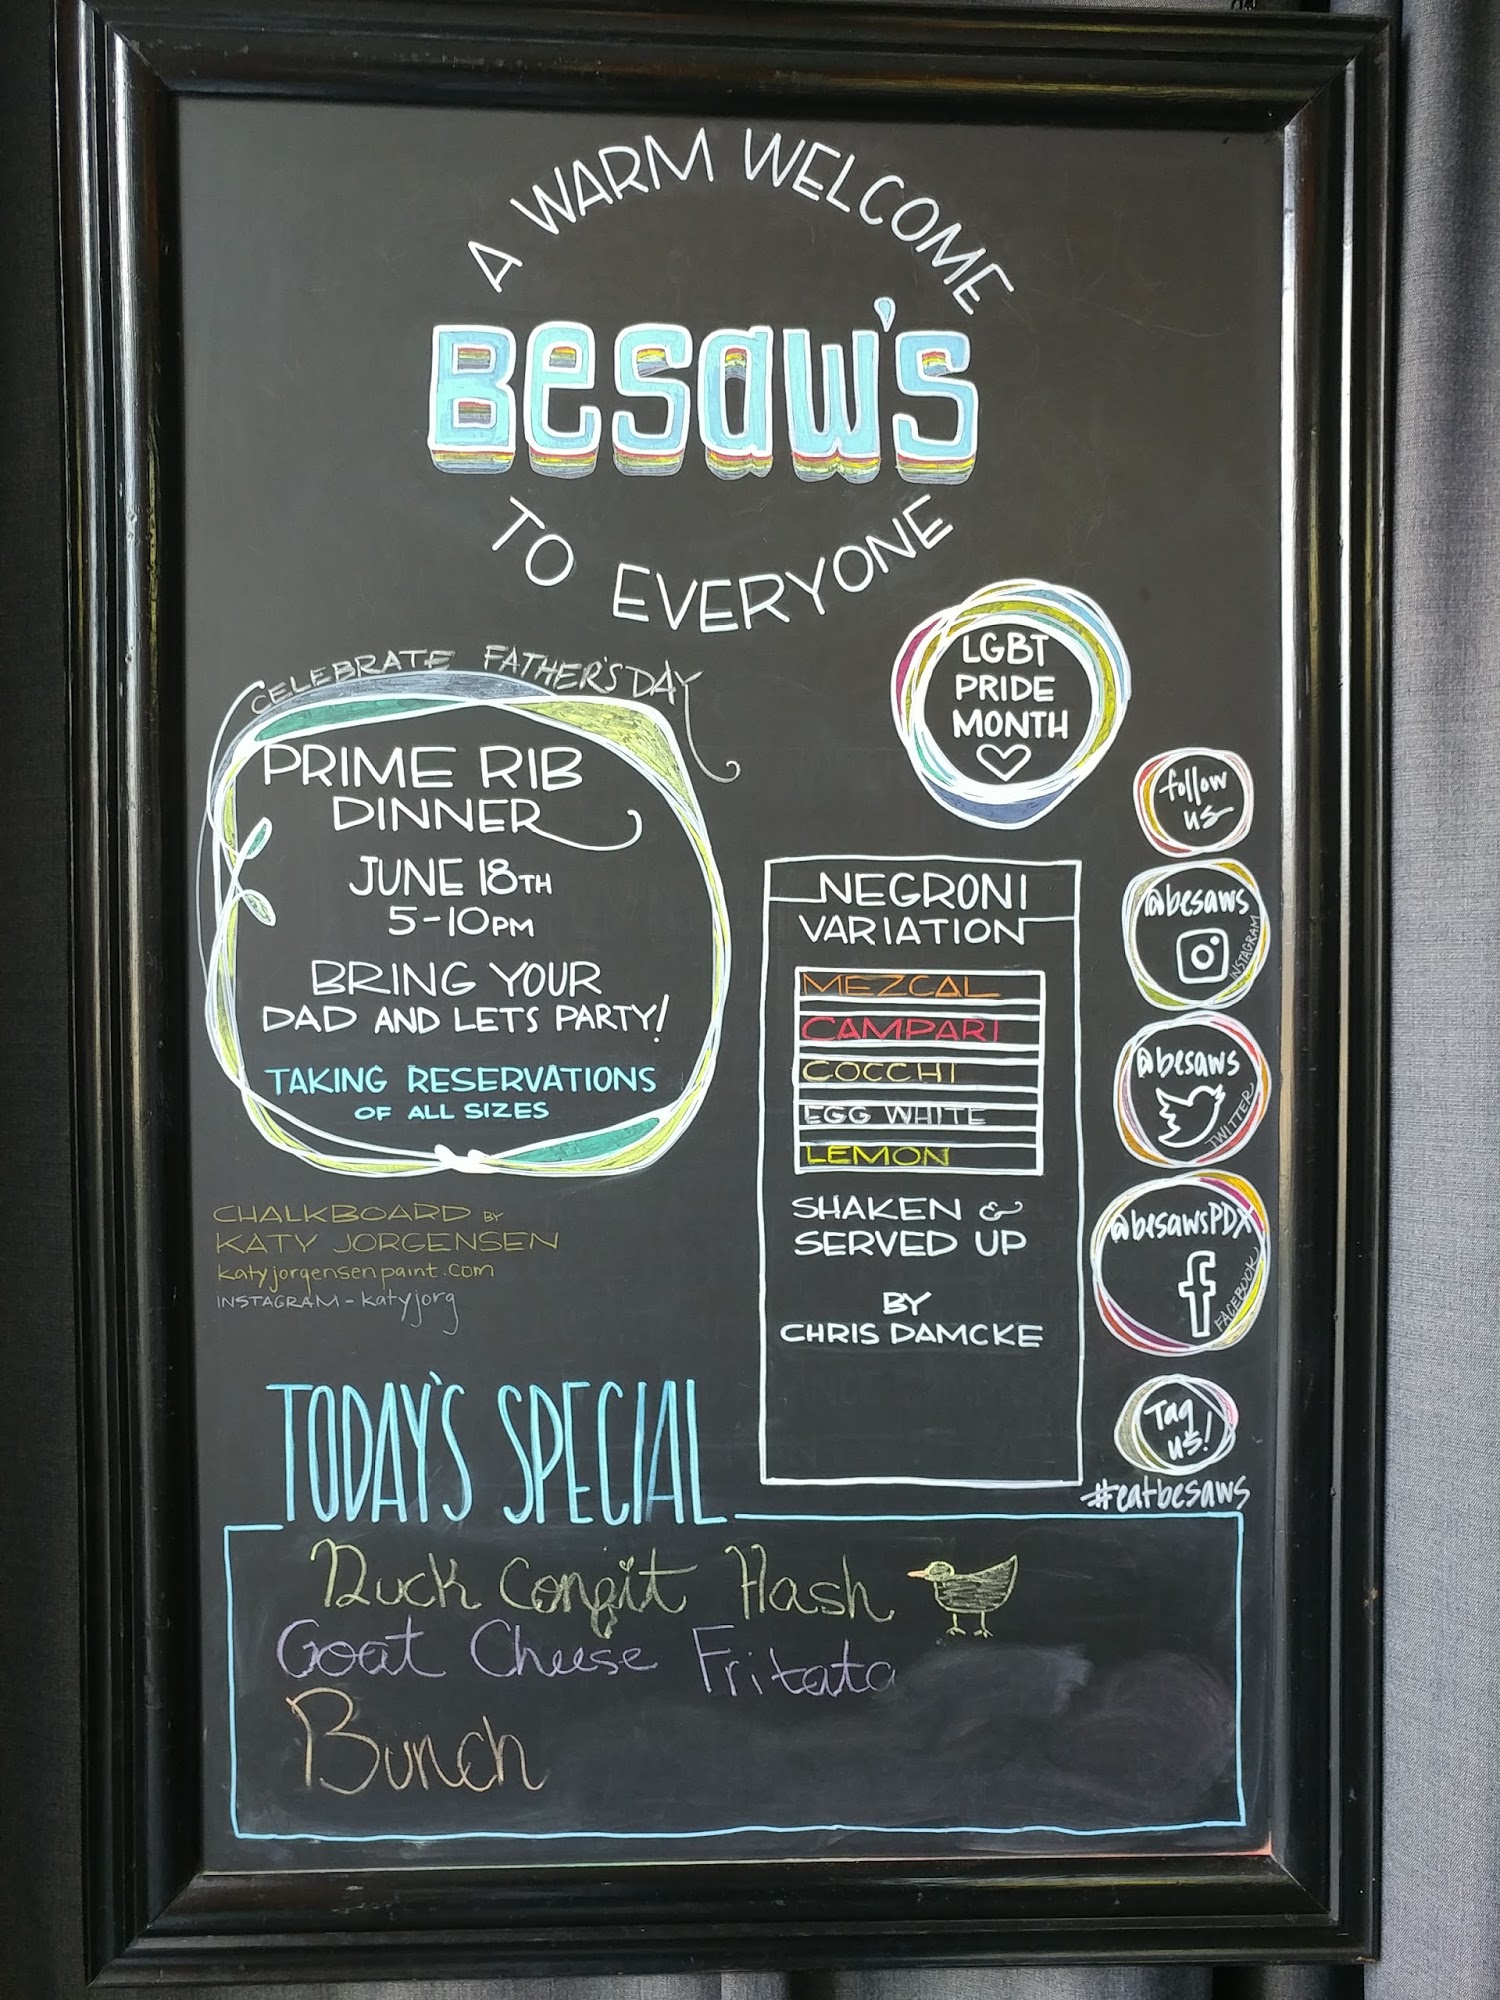 A WARM WELCOME
BESAW'S
TO EVERYONE
LGBT
PRIDE
MONTH
CELEBRATE FATHER'S DAY
PRIME RIB
DINNER
JUNE 18TH
5-10PM
BRING YOUR
DAD AND LETS PARTY!
TAKING RESERVATIONS
OF ALL SIZES
CHALKBOARD BY
KATY JORGENSEN
katyjorgensenpaint.com
INSTAGRAM - katyjorg
NEGRONI
VARIATION
MEZCAL
CAMPARI
COCCHI
EGG WHITE
LEMON
SHAKEN &
SERVED UP
BY
CHRIS DAMCKE
follow
us
@besaws
INSTAGRAM
@besaws
TWITTER
@besawsPDX
FACEBOOK
Tag
us!
#eatbesaws
TODAY'S SPECIAL
Duck Confit Hash
Goat Cheese Fritata
Bunch